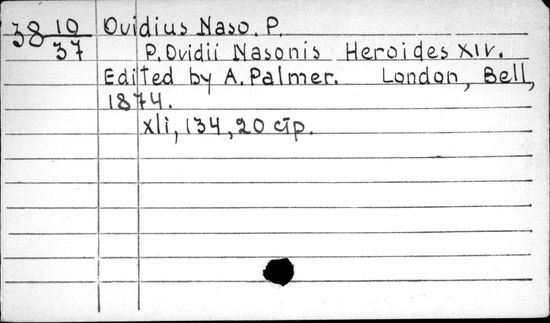 38 10/37 Ovidius Naso. P.
P. Ovidii Nasonis Heroides XIV.
Edited by A. Palmer. London, Bell,
1874.
xli, 134, 20 стр.